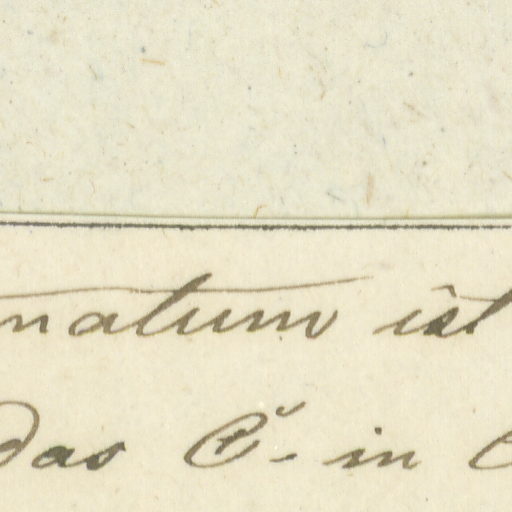 natum ist
das C̆. in